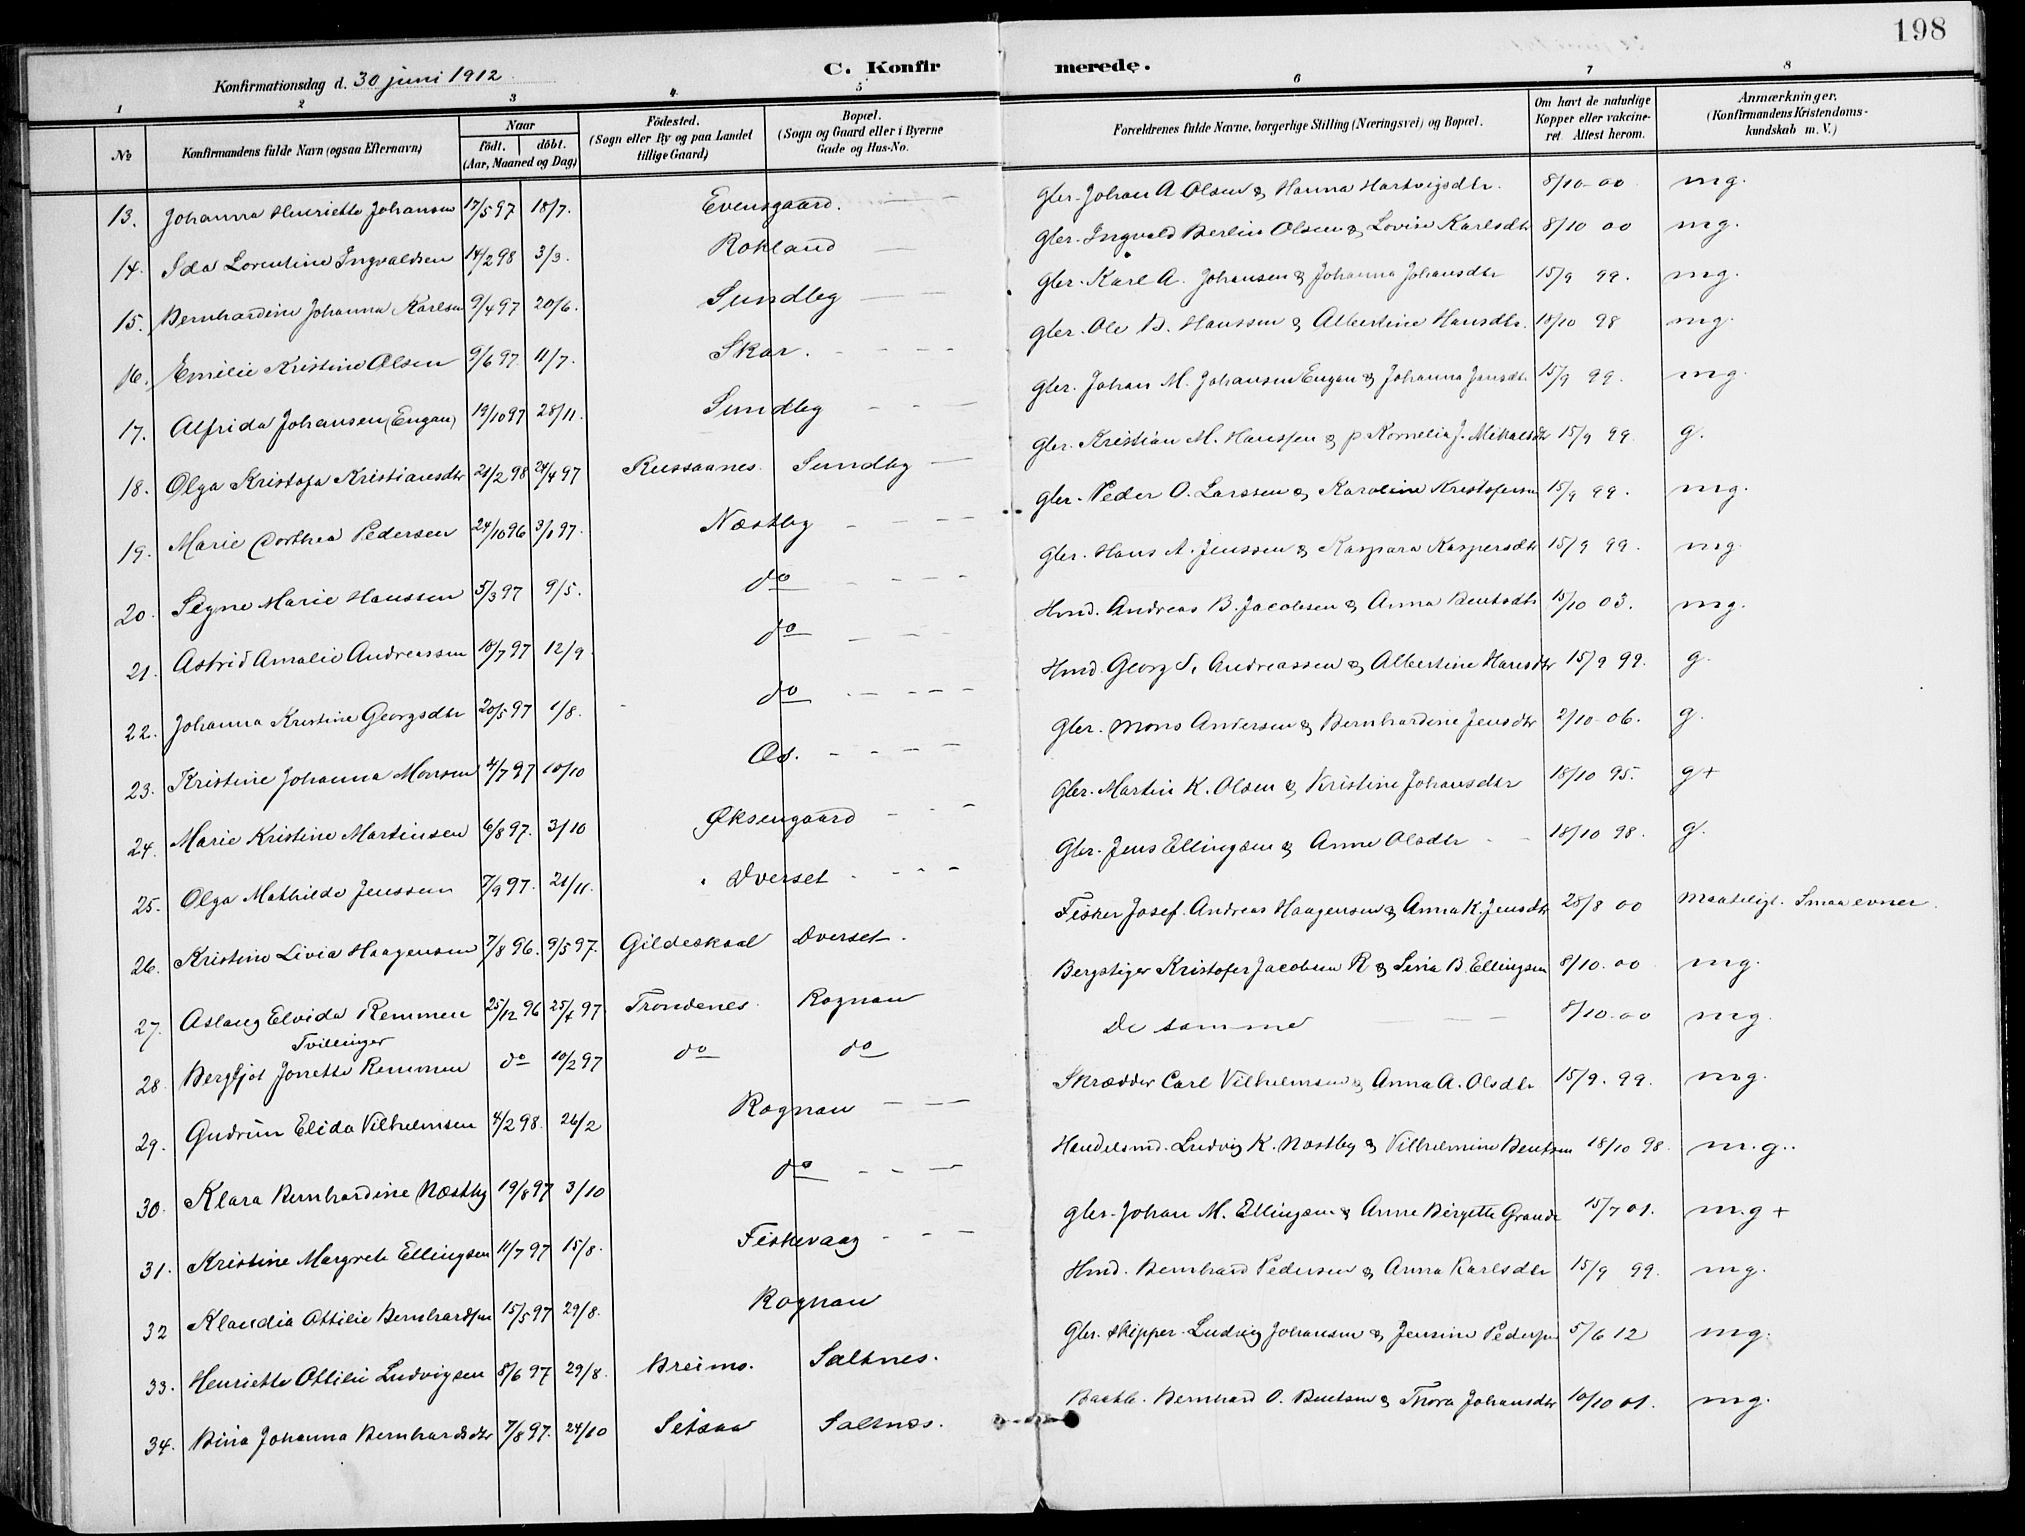 198
Konfirmationsdag d. 30 juni 1912
C. Konfirmerede.
1 2 3 4 5 6 7 8
No
Konfirmandens fulde Navn (ogsaa Efternavn)
Naar
födt. döbt.
(Aar, Maaned og Dag)
Födested.
(Sogn eller By og paa Landet
tillige Gaard)
Bopæl.
(Sogn og Gaard eller i Byerne
Gade og Hus-No.
Forældrenes fulde Navne, borgerlige Stilling (Næringsvei) og Bopæl.
Om havt de naturlige
Kopper eller vakcine-
ret. Attest herom.
Anmærkninger.
(Konfirmandens Kristendoms-
kundskab m. V.)
13. Johanna Henriette Johansen 17/5 97 18/7. Evensgaard. Gbr. Johan A Olsen & Hanna Hartvigsdtr. 8/10 00 mg.
14. Ida Lorentine Ingvaldsen 14/2 98 3/3. Rokland Gbr. Ingvald Berlin Olsen & Lovise Karlsdtr 8/10 00 mg.
15. Bernhardine Johanna Karlsen 9/4 97 20/6. Sundby Gbr. Karl A. Johansen & Johanna Johansdtr 15/9 99. mg.
16. Emilie Kristine Olsen 9/6 97. 11/7. Skar. Gbr. Ole B. Hanssen & Albertine Hansdtr. 18/10 98 mg.
17. Alfrida Johansen (Engan) 19/10 97 28/11. Sundby Gbr. Johan M. Johansen Engan & Johanna Jensdtr 15/9 99. mg.
18. Olga Kristofa Kristiansdtr 21/2 98 24/4 97 Russaanes. Sundby Gbr. Kristian M. Hanssen & p Kornelia J. Mikalsdtr 15/9 99. g.
19. Marie Dorthea Pedersen 24/10 96 3/1 97. Næstby Gbr. Peder O. Larssen & Karoline Kristofersen 15/9 99. mg.
20. Signe Marie Hanssen 5/3 97 9/5. do Gbr. Hans A. Jenssen & Kaspara Kaspersdtr 15/9 99. mg.
21. Astrid Amalie Andreassen 18/7 97 12/9. do Hmd. Andreas B. Jacobsen & Anna Bentsdtr 15/10 03. mg.
22. Johanna Kristine Georgsdtr 20/5 97 1/8. do Hmd. Georg S. Andreassen & Albertine Hansdtr 15/9 99. g.
23. Kristine Johanna Monsen 4/7 97 10/10 Os. Gbr. Mons Andersen & Bernhardine Jensdtr 2/10 06. g.
24. Marie Kristine Martinsen 6/8 97. 3/10 Øksengaard Gbr. Martin K. Olsen & Kristine Johansdtr 18/10 95. g+
25. Olga Mathilde Jenssen 7/9 97. 21/11. Dverset Gbr. Jens Ellingsen & Anne Olsdtr 18/10 98. g.
26. Kristine Livia Haagensen 7/8 96. 9/5 97. Gildeskaal Dverset. Fisker Josef Andreas Haagensen & Anna K. Jensdtr 28/8 00 Maadeligt. Smaa evner.
27. Aslaug Elvida Remmen 25/12 96 25/4 97 Trondenes. Rognan Bergstiger Kristofer Jacobsen R & Lina B. Ellingsen 8/10. 00 mg.
Tvillinger
28. Bergljot Jonette Remmen do 10/2 97 do do De samme 8/10. 00 mg.
29. Gudrun Elida Vilhelmsen 4/2 98. 26/2 Rognan Skrædder Carl Vilhelmsen & Anna A. Olsdtr 15/9. 99. mg.
30. Klara Bernhardine Næstby 19/8 97 3/10 do Handelsmd. Ludvig K. Næstby & Vilhelmine Bentsen 18/10 98. m.g.
31. Kristine Margrete Ellingsen 11/7 97 15/8. Fiskevaag Gbr. Johan M. Ellingsen & Anne Birgitte Grande 15/7 01. m.g+
32 Klaudia Ottilie Bernhardsen 15/5 97 29/8. Rognan Hmd. Bernhard Pedersen & Anna Karlsdtr 15/9 99. mg.
33. Henriette Ottilie Ludvigsen 8/6 97 29/8. Breimo. Saltnes. Gbr. skipper Ludvig Johansen & Jensine Pedersen 5/6 12 mg.
34. Bina Johanna Bernhardsdtr 7/8 97. 24/10 Setsaa Saltnæs. Baatb. Bernhard O. Bentsen & Thora Johansdtr 10/10 01. mg.